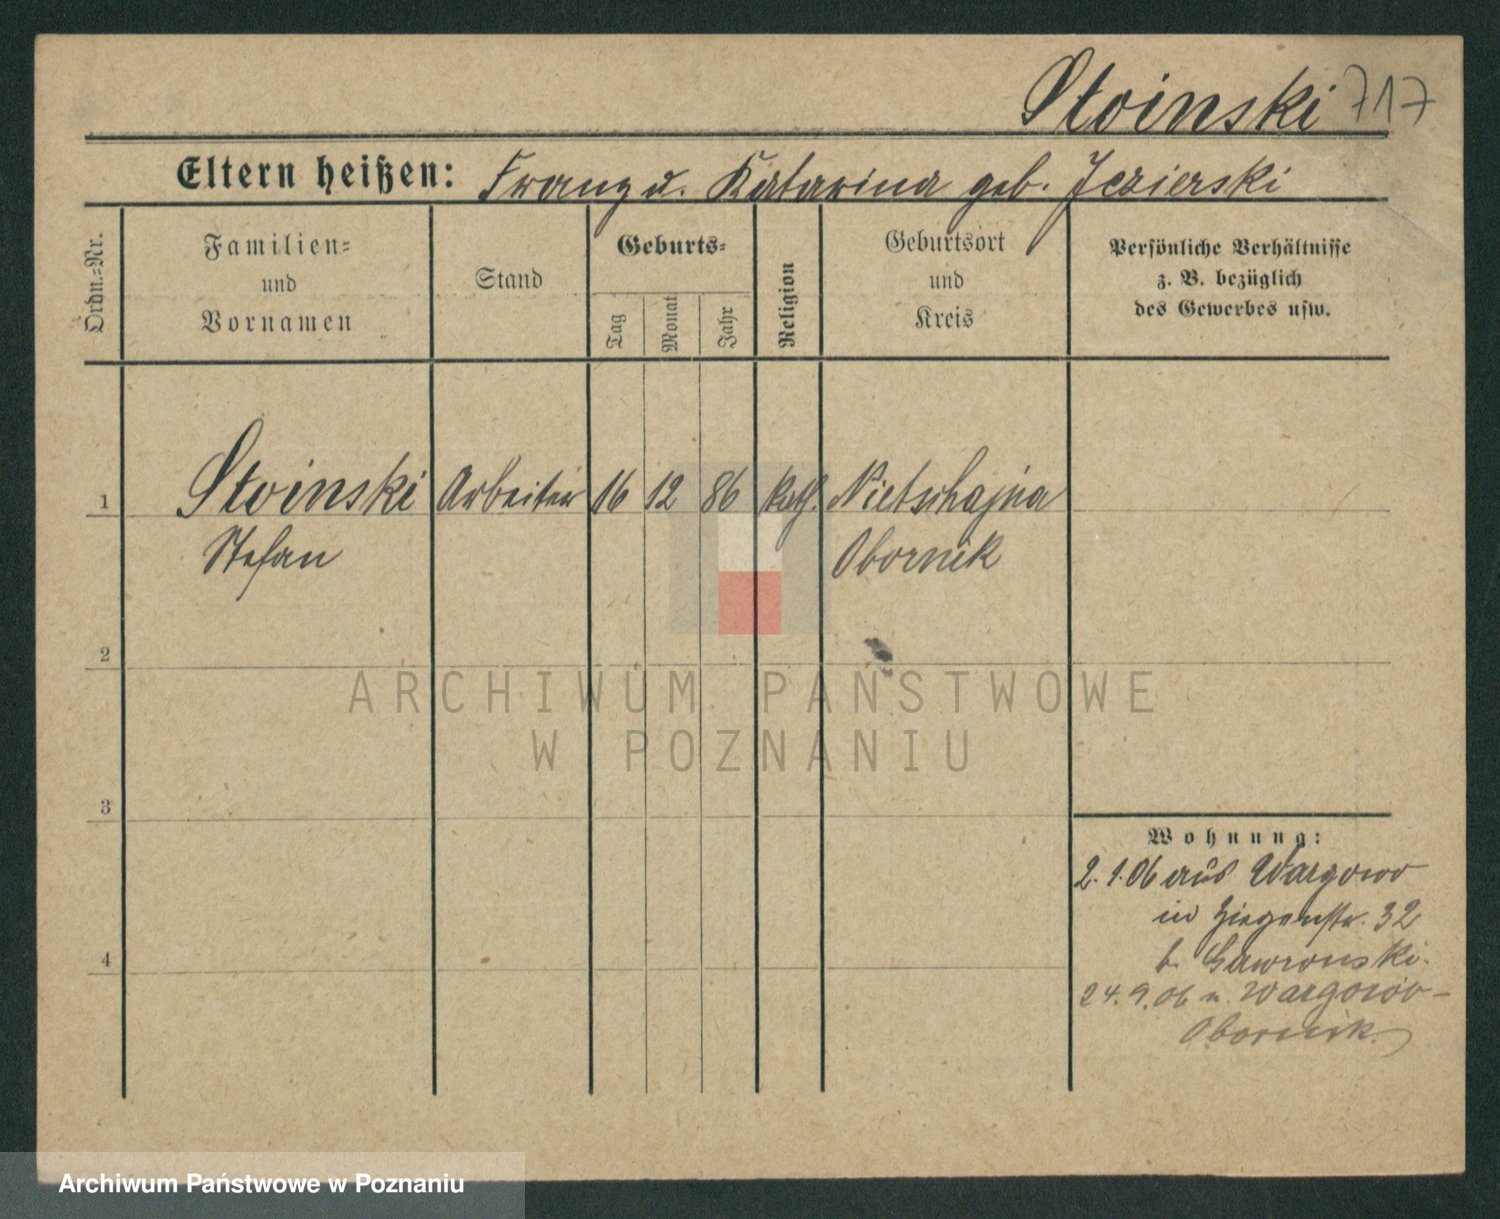 Stoinski 717
Eltern heißen: Franz u. Katarina geb. Jezierski
Ordn.-Nr.
Familien-
und
Vornamen
Stand
Geburts-
Tag
Monat
Jahr
Religion
Geburtsort
und
Kreis
Persönliche Verhältnisse
z. B. bezüglich
des Gewerbes usw.
1 Stoinski Arbeiter 16 12 86 kath. Nietschajna
Stefan Obornik
2
ARCHIWUM PAŃSTWOWE
W POZNANIU
3
Wohnung:
2.1.06 aus Wargowo
in Ziegenstr. 32
b. Gawronski.
4
24.9.06 n. Wargowo-
Obornik.
Archiwum Państwowe w Poznaniu